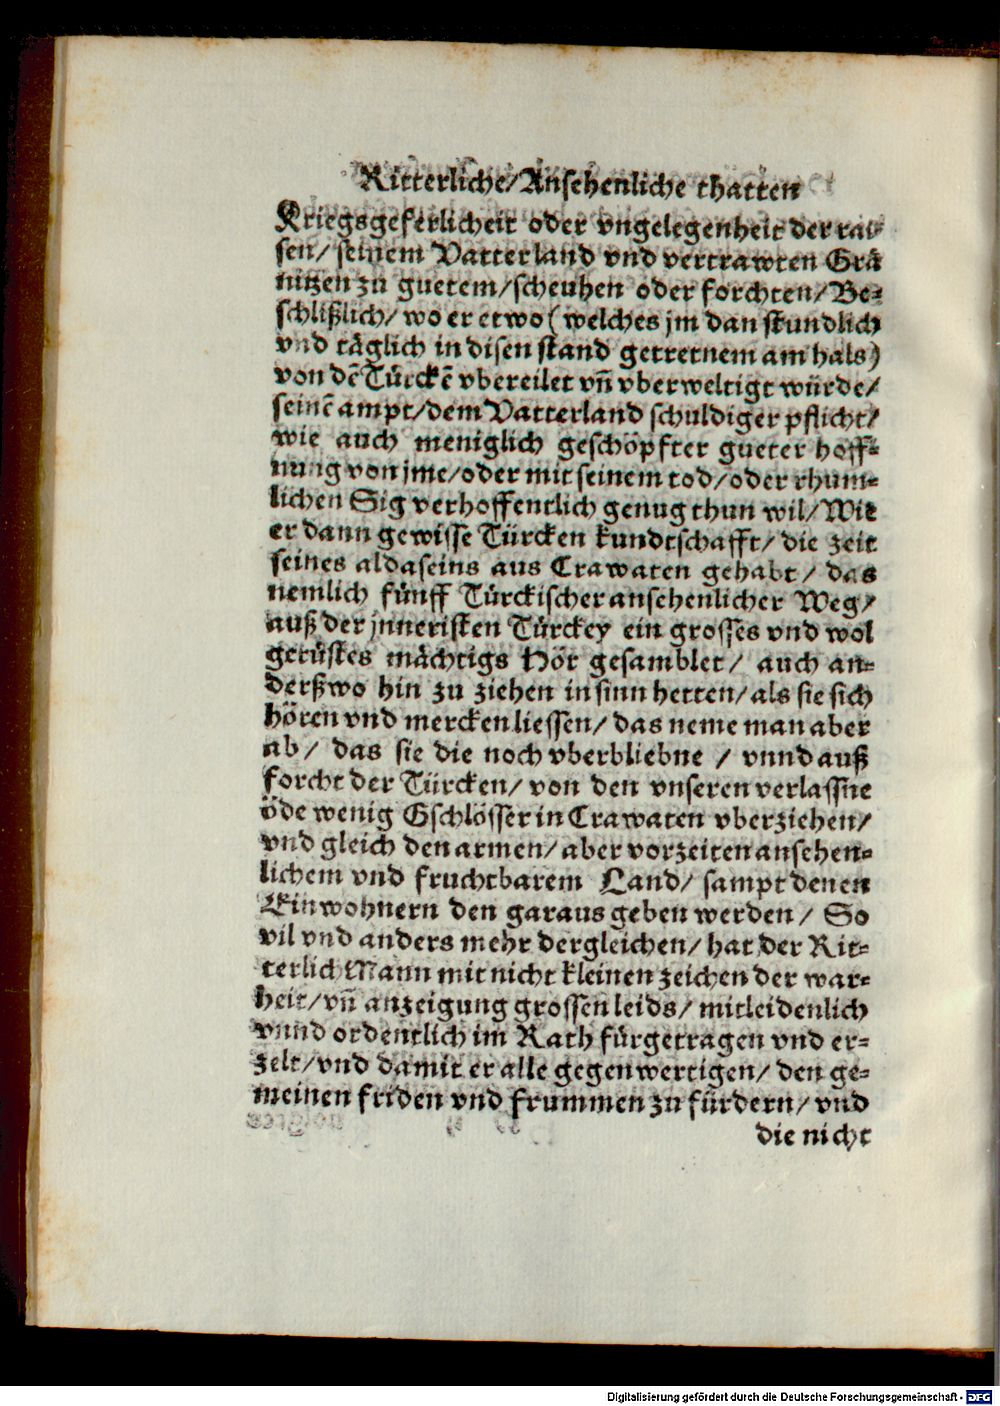 Ritterliche/Ansehenliche thatten
Kriegsgeferlicheit oder vngelegenheit der rai-
sen/ seinem Vatterland vnd vertrawten Grä
nitzen zu guetem/scheuhen oder forchten/Be-
schlißlich/ wo er etwo (welches jm dan stundlich
vnd täglich in disen stand getretnem am hals)
von dẽ Türckẽ vbereilet vñ vberweltigt würde/
seinẽ ampt/dem Vatterland schuldiger pflicht/
wie auch meniglich geschöpfter gueter hoff-
nung von jme/oder mit seinem tod/oder rhum-
lichen Sig verhoffentlich genug thun wil/Wie
er dann gewisse Türcken kundtschafft/ die zeit
seines aldaseins aus Crawaten gehabt/ das
nemlich fünff Türckischer ansehenlicher Weg/
auß der jnneristen Türckey ein grosses vnd wol
gerüstes mächtigs Hör gesamblet/ auch an-
derßwo hin zu ziehen in sinn hetten/als sie sich
hören vnd mercken liessen/das neme man aber
ab/ das sie die noch vberbliebne / vnnd auß
forcht der Türcken/ von den vnseren verlassne
öde wenig Gschlösser in Crawaten vberziehen/
vnd gleich den armen/aber vorzeiten ansehen-
lichem vnd fruchtbarem Land/ sampt denen
Einwohnern den garaus geben werden/ So
vil vnd anders mehr dergleichen/ hat der Rit-
terlich Mann mit nicht kleinen zeichen der war-
heit/vñ anzeigung grossen leids/ mitleidenlich
vnnd ordentlich im Rath fürgetragen vnd er-
zelt/vnd damit er alle gegenwertigen/ den ge-
meinen friden vnd frummen zu fürdern/ vnd
die nicht
Digitalisierung gefördert durch die Deutsche Forschungsgemeinschaft - DFG